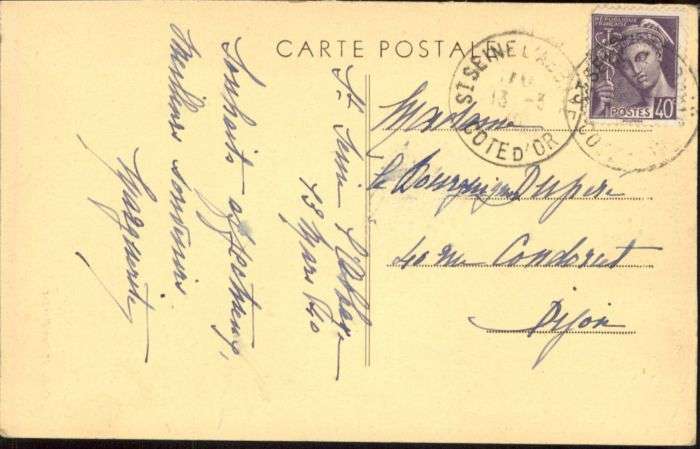 CARTE POSTALE
RÉPUBLIQUE FRANÇAISE
POSTES 40
ST SEINE L'ABBAYE
13 -3
COTE D'OR
St Seine l'Abbaye
13 Mars 40
Souhaits affectueux,
Meilleurs souvenirs
Marguerite
Madame
Dupré
40 rue Condorcet
Dijon